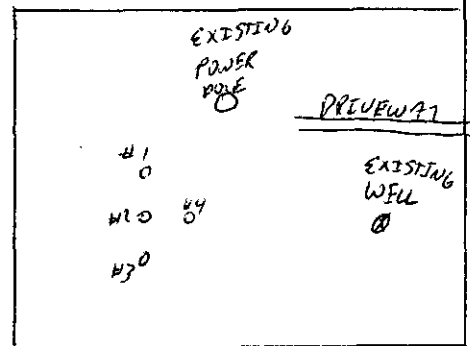 EXISTING
POWER
POLE
DRIVEWAY
#1
EXISTING
WELL
#2
#4
#3